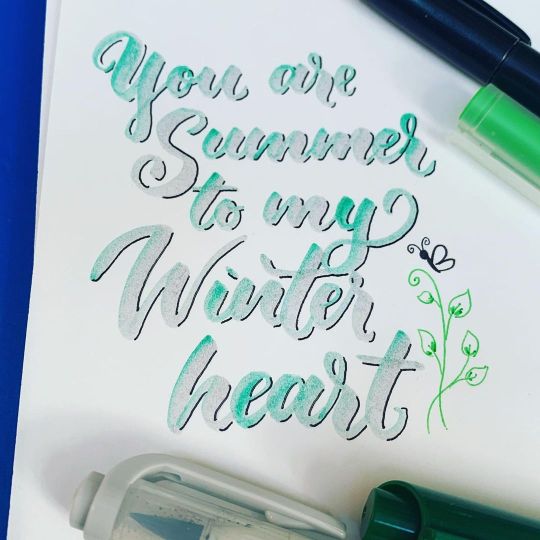 You are
Summer
to my
Winter
heart